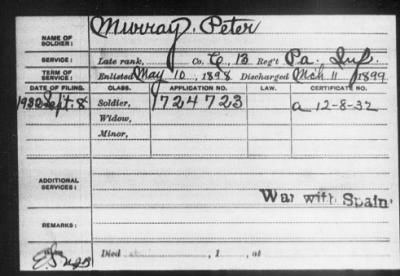 NAME OF SOLDIER: Murray, Peter
SERVICE: Late rank, Co. C, 13 Reg't Pa. Inf.
TERM OF SERVICE: Enlisted May 10, 1898 Discharged Mch 11 1899
DATE OF FILING. CLASS. APPLICATION NO. LAW. CERTIFICATE NO.
1932 Sept. 8 Soldier, 1724723 a 12-8-32
Widow,
Minor,
ADDITIONAL SERVICES:
War with Spain
REMARKS:
Died , 1 , at